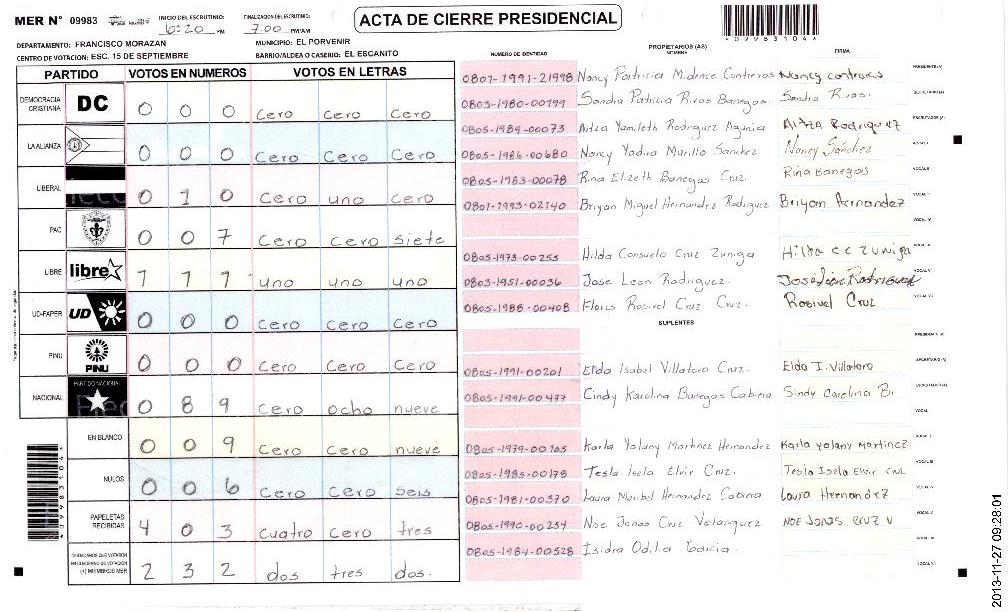 MER N° 09983
INICIO DEL ESCRUTINIO: 6:20 PM
FINALIZACION DEL ESCRUTINIO: 7:00 PM/AM
ACTA DE CIERRE PRESIDENCIAL
09983104
DEPARTAMENTO: FRANCISCO MORAZAN
MUNICIPIO: EL PORVENIR
CENTRO DE VOTACION: ESC. 15 DE SEPTIEMBRE
BARRIO/ALDEA O CASERIO: EL ESCANITO
PARTIDO VOTOS EN NUMEROS VOTOS EN LETRAS
DEMOCRACIA CRISTIANA DC 0 0 0 Cero Cero Cero
LA ALIANZA 0 0 0 Cero Cero Cero
LIBERAL 0 1 0 Cero uno Cero
PAC 0 0 7 Cero Cero siete
LIBRE libre 1 1 1 uno uno uno
UD-FAPER UD 0 0 0 Cero Cero Cero
PINU PINU 0 0 0 Cero Cero Cero
NACIONAL PARTIDO NACIONAL 0 8 9 Cero ocho nueve
EN BLANCO 0 0 9 Cero Cero nueve
NULOS 0 0 6 Cero Cero seis
PAPELETAS RECIBIDAS 4 0 3 cuatro Cero tres
CIUDADANOS QUE VOTARON EN CUADERNO DE VOTACION (+) MIEMBROS MER 2 3 2 dos tres dos.
NUMERO DE IDENTIDAD PROPIETARIOS (AS) NOMBRE FIRMA
0801-1991-21998 Nancy Patricia Mdence Contreras Nancy contreras PRESIDENTE (A)
0803-1980-00199 Sandra Patricia Rivas Banegas. Sandra Rivas. SECRETARIO (A)
0805-1989-00073 Aitza Yamileth Rodriguez Aitza Rodriguez ESCRUTADOR (A)
0805-1986-00680 Nancy Yadira Murillo Sanchez Nancy Sánchez VOCAL I
0805-1983-00078 Rina Elizeth Banegas Cruz. Rina Banegas VOCAL II
0801-1993-02140 Briyan Miguel Hernandez Rodriguez Briyan Hernandez VOCAL III
VOCAL IV
0805-1973-00255 Hilda Consuelo Cruz Zuniga Hilda CC Zuniga
0803-1951-00036 Jose Leon Rodriguez. José León Rodriguez VOCAL V
0805-1988-00408 Flores Rosivel Cruz Cruz. Rosivel Cruz
SUPLENTES
PRESIDENTE (A)
0805-1991-00201 Elda Isabel Villatoro Cruz. Elda I. Villatoro SECRETARIO (A)
0805-1991-00477 Cindy Karolina Banegas Cabrera Sindy Carolina B. ESCRUTADOR (A)
VOCAL I
0805-1979-00105 Karla Yolany Martinez Hernandez Karla yolany Martinez
0805-1985-00178 Tesla Isela Elvir Cruz. Tesla Isela Elvir Cruz VOCAL III
0805-1981-00370 Laura Maribel Hernandez Cabrera Laura Hernandez
0805-1990-00254 Noe Jonas Cruz Velasquez NOE JONAS CRUZ V VOCAL V
0805-1984-00528 Isidra Odilia
VOCAL VI
09983104
2013-11-27 09:28:01